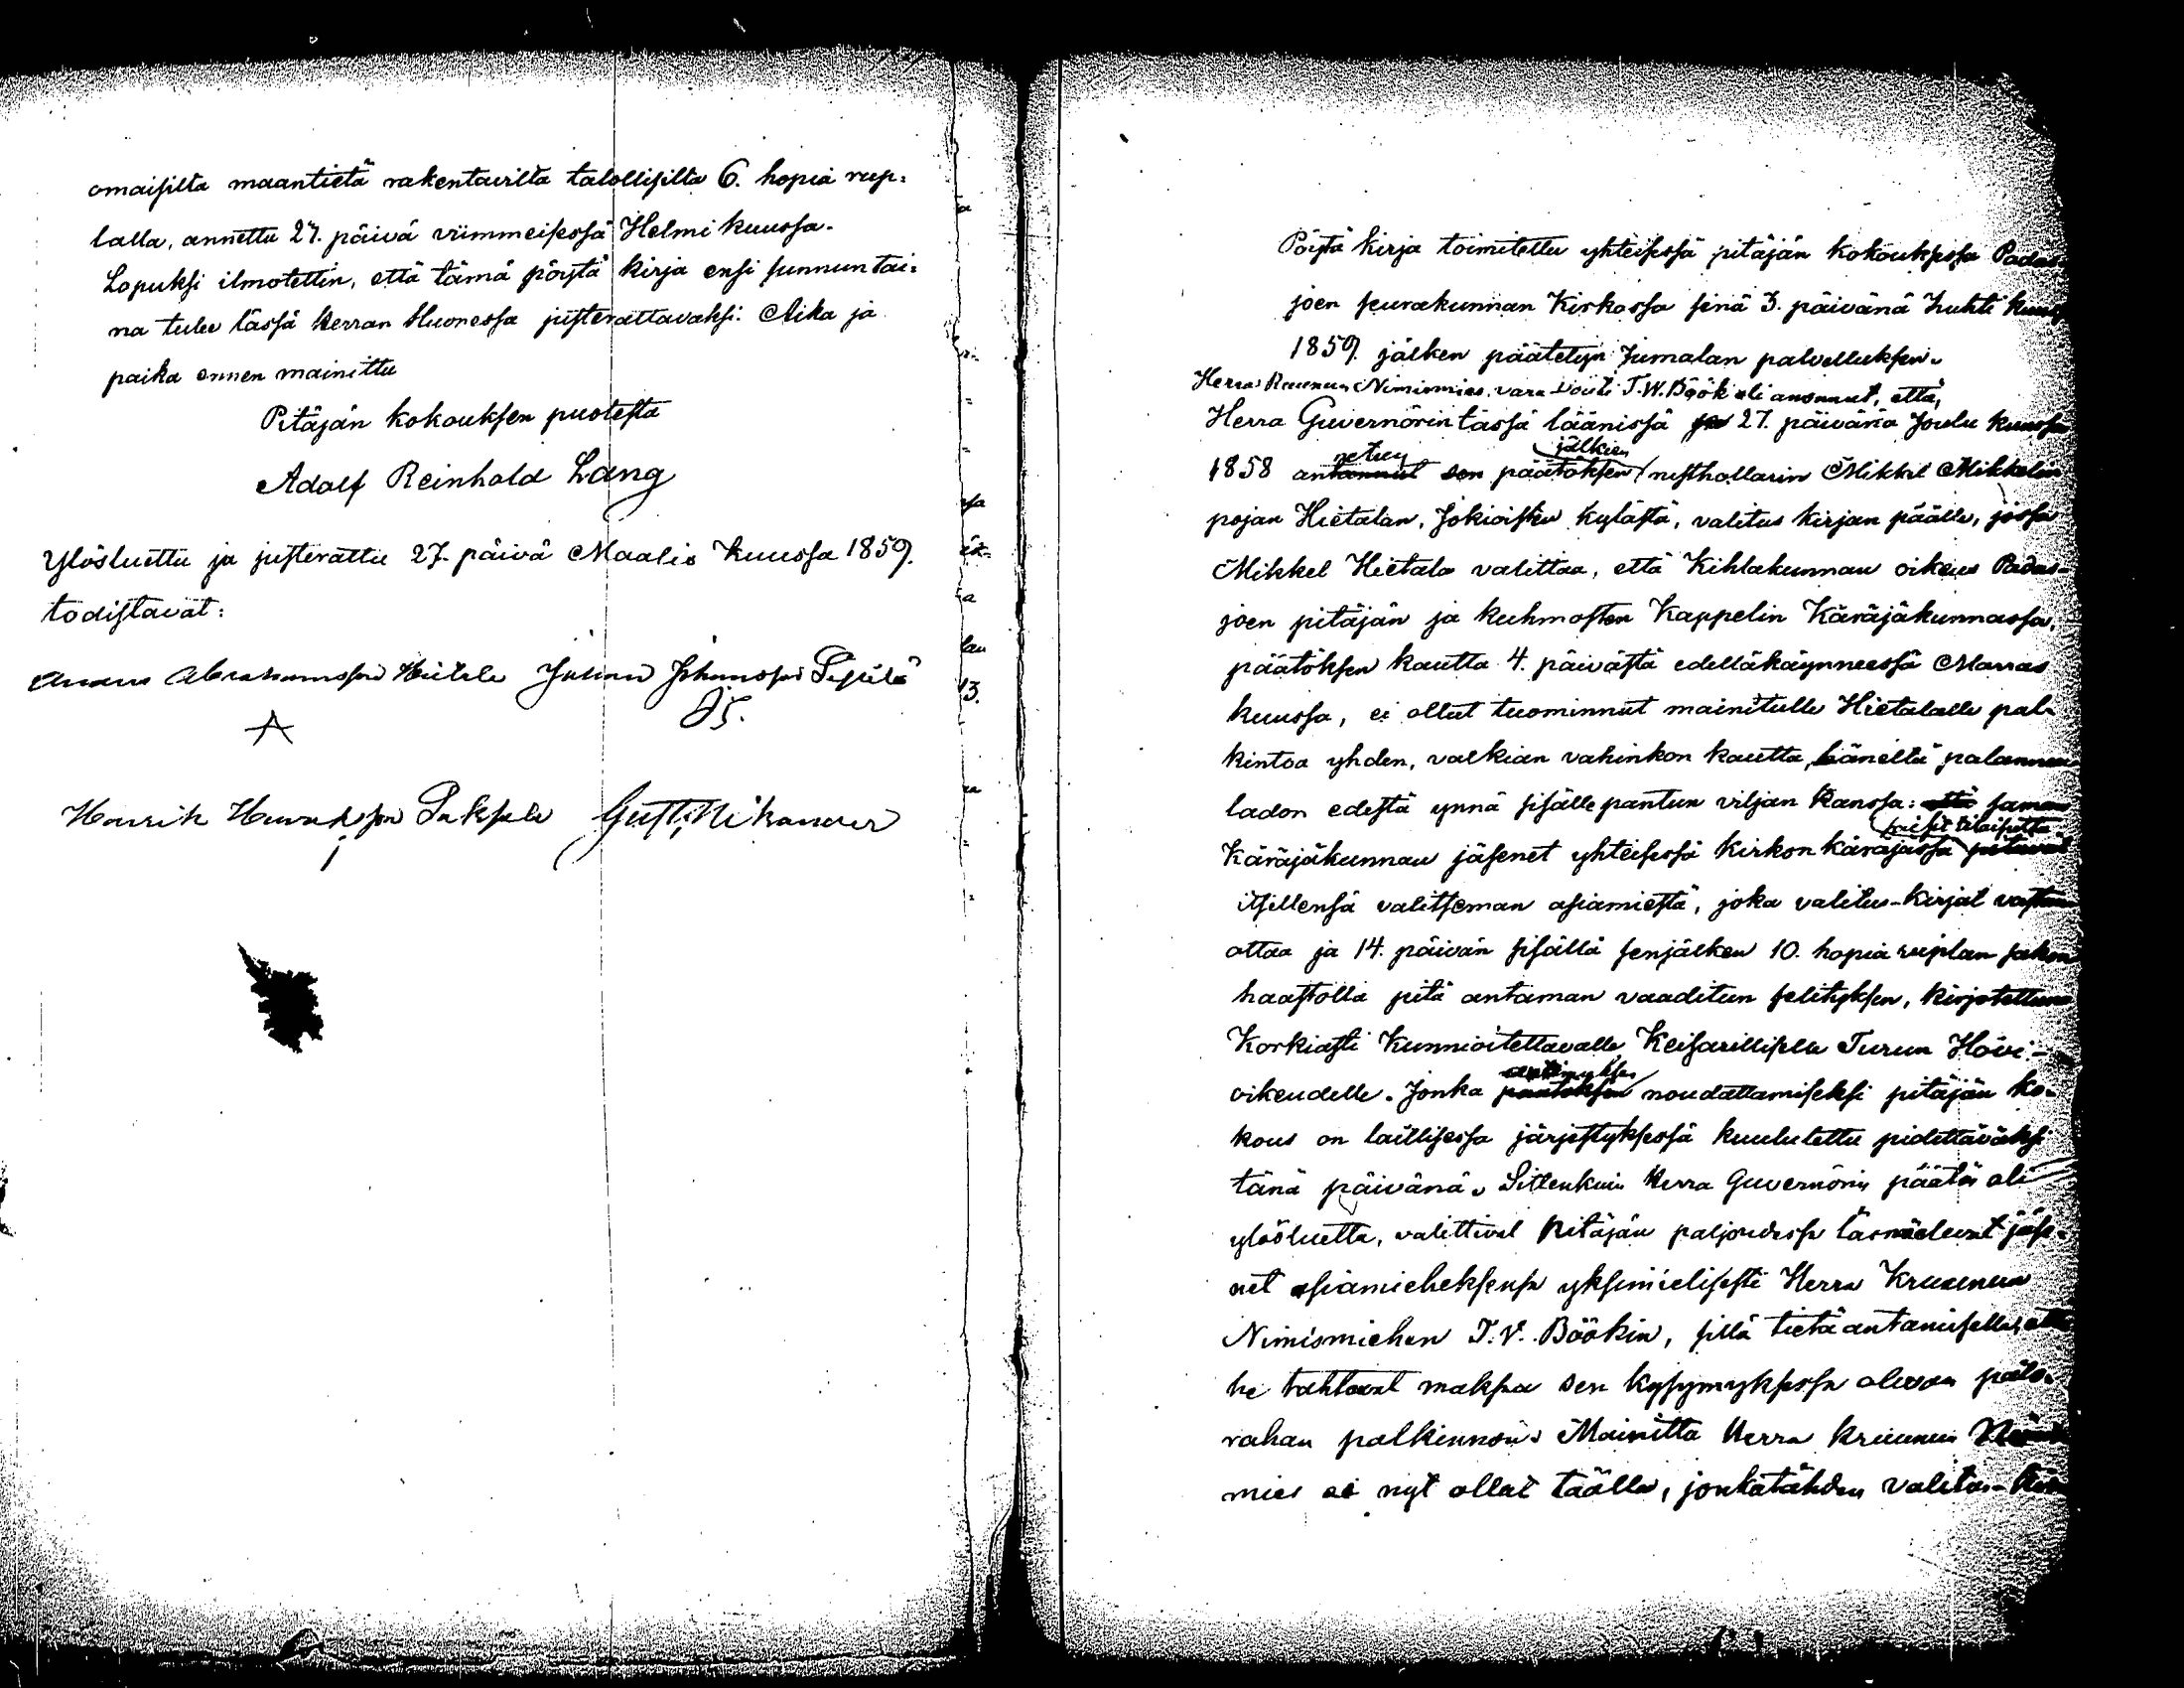 omaisilta maantietä rakentavilta talollisilta 6. hopia rup-
lalla, annettu 27. päivä viimmeisessä Helmi kuussa.
Lopuksi ilmotettin, että tämä pöytä kirja ensi sunnuntai-
na tulee tässä kerran Huonessa justerattavaksi. Aika ja
paika ennen mainittu
Pitäjän kokouksen puolesta
Adolf Reinhold Lang
Ylösluettu ja justerattu 27. päivä Maalis kuussa 1859.
todistavat:
Abrahamsson Heitele Juhan Johansson
A JS.
Henrik Gust. Nikander
Pöytä kirja toimitettu yhteisessä pitäjän kokouksessa Padas-
joen seurakunnan Kirkossa sinä 3. päivänä Huhti kuus
1859. jälken päätetyn Jumalan palvelluksen.
Herra Ruunun Nimismies, vara vouti T. W. Böök oli anonnut, että,
Herra Guvernörin tässä läänissä 27. päivänä Joulu kuussa
netun jälkeen
1858 antannut sen päätöksen rusthollarin Mikkil Mikkelin
pojan Hietalan, Jokioisten kylästä, valitus kirjan päälle, jossa
Mikkel Hietala valittaa, että Kihlakunnan oikeus Padas-
joen pitäjän ja kuhmosten Kappelin Käräjäkunnassa,
päätöksen kautta 4. päivästä edelläkäynneessä Marras
kuussa, ei ollut tuominnut mainitulle Hietalalle pal-
kintoa yhden, valkian vahinkon kautta, häneltä palannen
ladon edestä ynnä sisälle pantun viljan kanssa: että saman
Käräjäkunnan jäsenet yhteisessä kirkon käräjässä pitävät
itsillensä valitseman asiamiestä, joka valitus-kirjat vastan
ottaa ja 14. päivän sisällä senjälken 10. hopia ruplan sakon
haastolla pitä antaman vaaditun selityksen, kirjotettuna
Korkiasti Kunnioitettavalle Keisarillisela Turun Hovi-
oikeudelle. Jonka päätöksen noudattamiseksi pitäjän ko-
kous on laillisessa järjestyksessä kuulutettu pidettäväksi
tänä päivänä. Sittenkuin Herra Guvernörin päätös oli
ylösluettu, valittivat Pitäjän paljoudessa läsnäolevat jäse-
net asiamieheksensä yksimielisesti Herra Kruunun
Nimismiehen T. V. Böökin, sillä tietä antamisella, että
he tahtovat maksaa sen kysymyksessä olevan palo-
rahan palkinnon. Mainittu Herra kruunun Nimis
mies ei nyt ollut täällä, jonkatähden valitus-kir